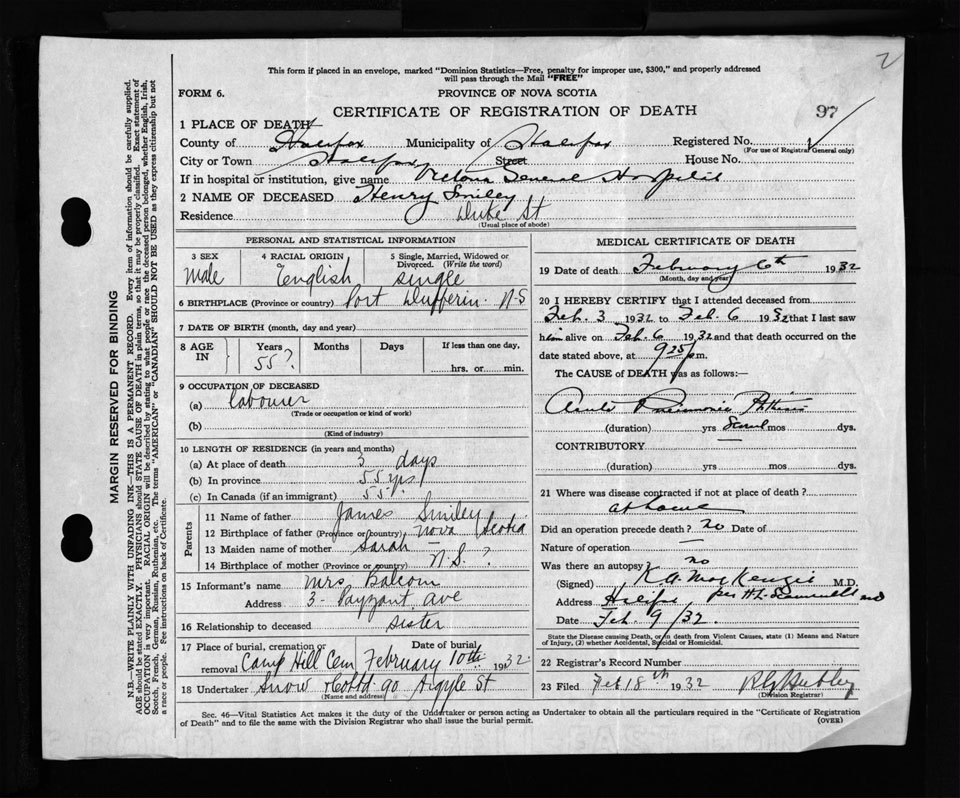 2
This form if placed in an envelope, marked "Dominion Statistics—Free, penalty for improper use, $300," and properly addressed
will pass through the Mail "FREE"
FORM 6. PROVINCE OF NOVA SCOTIA
CERTIFICATE OF REGISTRATION OF DEATH 97
1 PLACE OF DEATH
County of Halifax Municipality of Halifax Registered No.
(For use of Registrar General only)
City or Town Halifax Street House No.
If in hospital or institution, give name Victoria General Hospital
2 NAME OF DECEASED Henry Smiley
Residence Duke St
(Usual place of abode)
PERSONAL AND STATISTICAL INFORMATION
3 SEX 4 RACIAL ORIGIN 5 Single, Married, Widowed or
Divorced. (Write the word)
Male English single
6 BIRTHPLACE (Province or country) Port Dufferin. N.S
7 DATE OF BIRTH (month, day and year)
8 AGE IN Years Months Days If less than one day,
55? hrs. or min.
9 OCCUPATION OF DECEASED
(a) labourer
(Trade or occupation or kind of work)
(b)
(Kind of industry)
10 LENGTH OF RESIDENCE (in years and months)
(a) At place of death 3 days
(b) In province 55 yrs
(c) In Canada (if an immigrant) 55?
Parents
11 Name of father James Smiley
12 Birthplace of father (Province or country) Nova Scotia
13 Maiden name of mother Sarah —
14 Birthplace of mother (Province or country) N.S. ?
15 Informant's name Mrs Balcom
Address 3 - Payzant ave
16 Relationship to deceased sister
17 Place of burial, cremation or Date of burial
removal Camp Hill Cem February 10th 1932
18 Undertaker Snow & Co Ltd 90 Argyle St
(Name and address)
MEDICAL CERTIFICATE OF DEATH
19 Date of death February 6th 1932
(Month, day and year)
20 I HEREBY CERTIFY that I attended deceased from
Feb. 3 1932 to Feb. 6 1932 that I last saw
him alive on Feb. 6 1932 and that death occurred on the
date stated above, at 9 25 p.m.
The CAUSE of DEATH was as follows:—
Acute Pneumonic
(duration) yrs mos dys.
CONTRIBUTORY
(duration) yrs mos dys.
21 Where was disease contracted if not at place of death?
at home
Did an operation precede death? no Date of
Nature of operation —
Was there an autopsy? no
(Signed) K. A. MacKenzie M.D.
Address Halifax per
Date Feb. 9/32.
State the Disease causing Death, or in death from Violent Causes, state (1) Means and Nature
of Injury, (2) whether Accidental, Suicidal or Homicidal.
22 Registrar's Record Number
23 Filed Feb 18th 1932
(Division Registrar)
Sec. 46—Vital Statistics Act makes it the duty of the Undertaker or person acting as Undertaker to obtain all the particulars required in the "Certificate of Registration
of Death" and to file the same with the Division Registrar who shall issue the burial permit. (OVER)
MARGIN RESERVED FOR BINDING
N.B.—WRITE PLAINLY WITH UNFADING INK—THIS IS A PERMANENT RECORD. Every item of information should be carefully supplied.
AGE should be stated EXACTLY. PHYSICIANS should STATE CAUSE OF DEATH in plain terms, so that it may be properly classified. Exact statement of
OCCUPATION is very important. RACIAL ORIGIN will be described by stating to what people or race the deceased person belonged, whether English, Irish,
Scotch, French, German, Russian, Ruthenian, etc. The terms "AMERICAN" or "CANADIAN" SHOULD NOT BE USED as they express citizenship but not
a race or people. See instructions on back of Certificate.